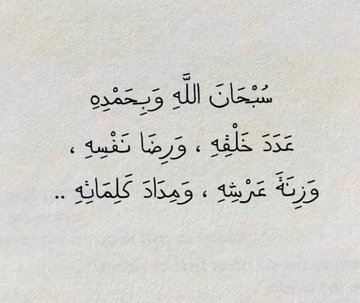 سُبْحَانَ اللَّهِ وَبِحَمْدِهِ
عَدَدَ خَلْقِهِ ، وَرِضَا نَفْسِهِ ،
وَزِنَةَ عَرْشِهِ ، وَمِدَادَ كَلِمَاتِهِ ..